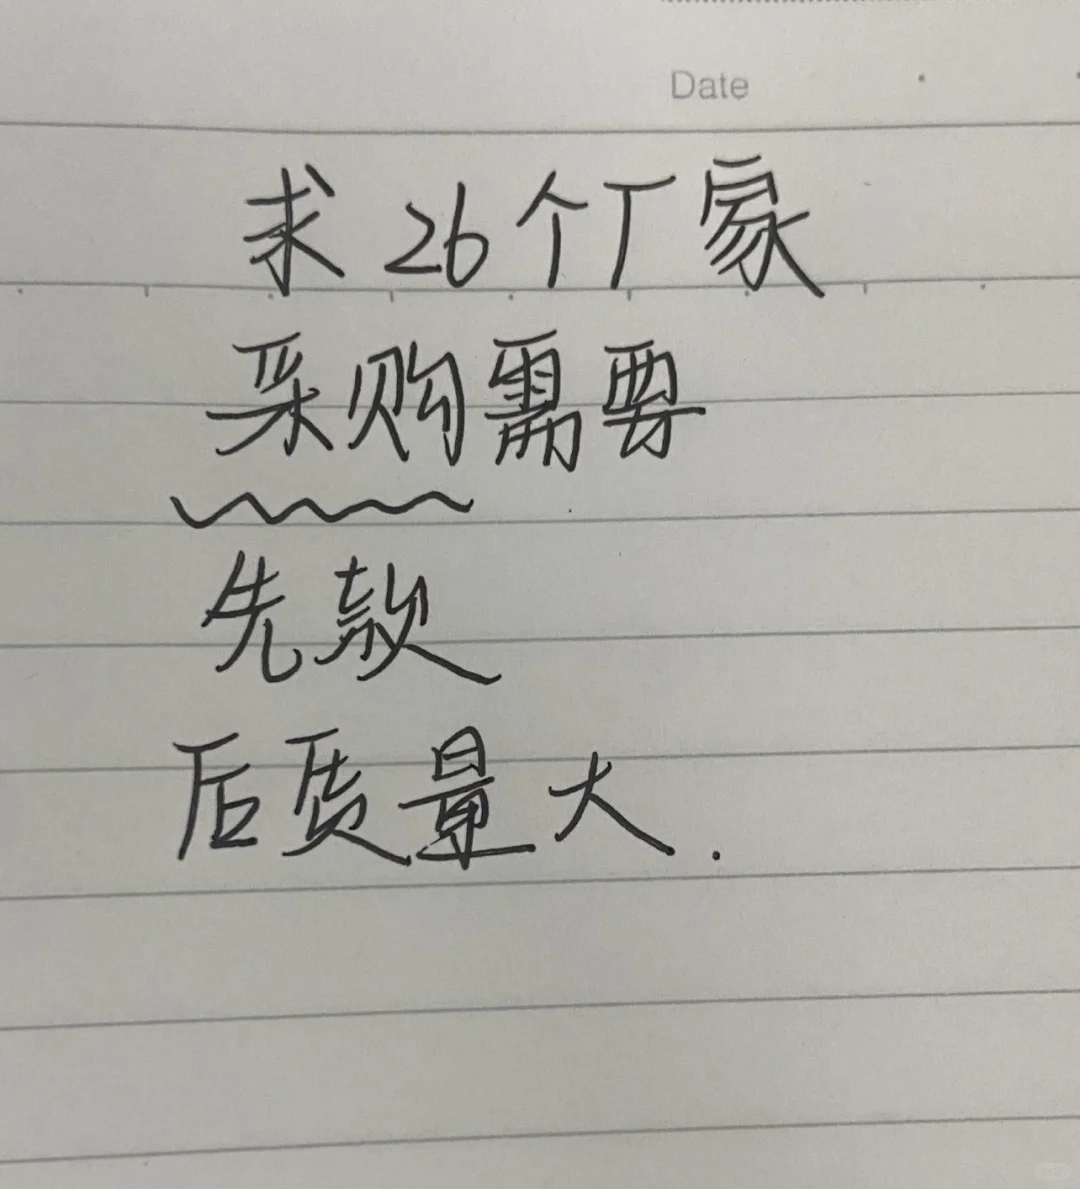 Date
求26个厂家
采购需要
先款
后质量大.